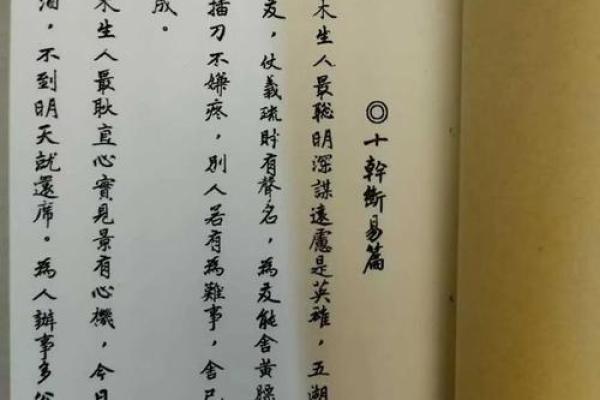 ◎十幹斷易篇
木生人最聡明深謀遠慮是英雄，五湖
友，仗義疏財有聲名，為友能舍黃驃
插刀不嫌疼，別人若有為難事，舍己
成。
木生人最耿直心實見景有心機，今日
酒，不到明天就還席。為人辦事多